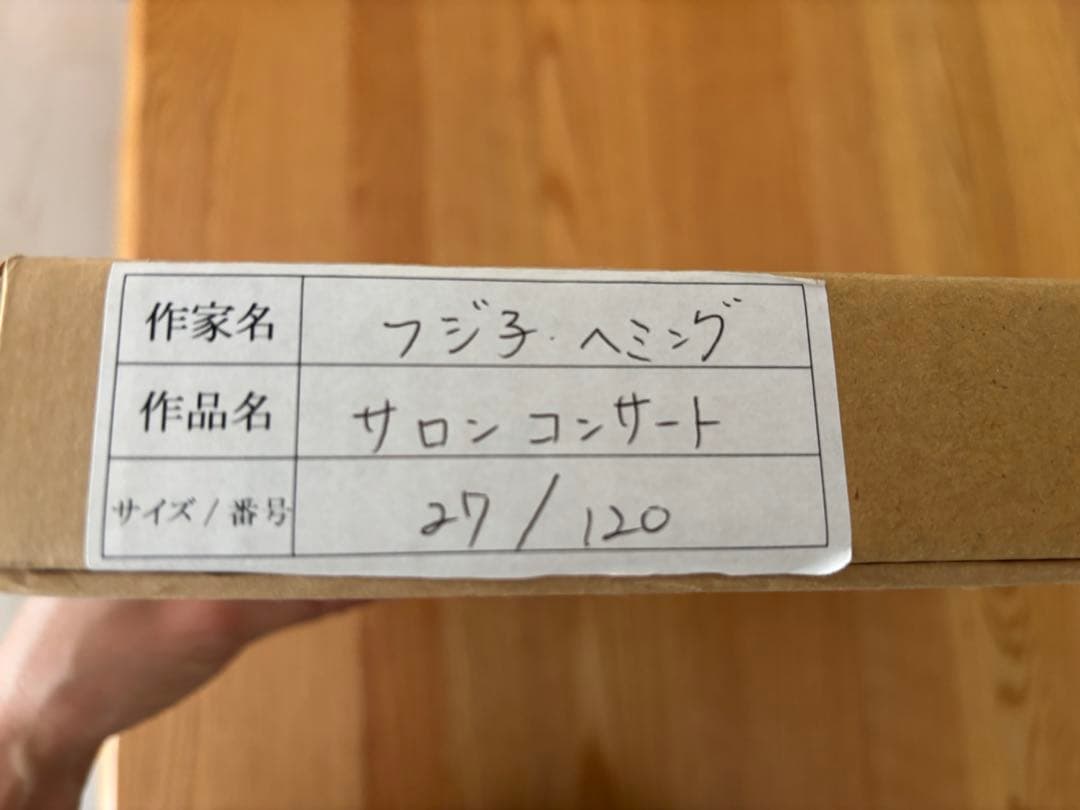 作家名 フジ子・ヘミング
作品名 サロンコンサート
サイズ / 番号 27 / 120